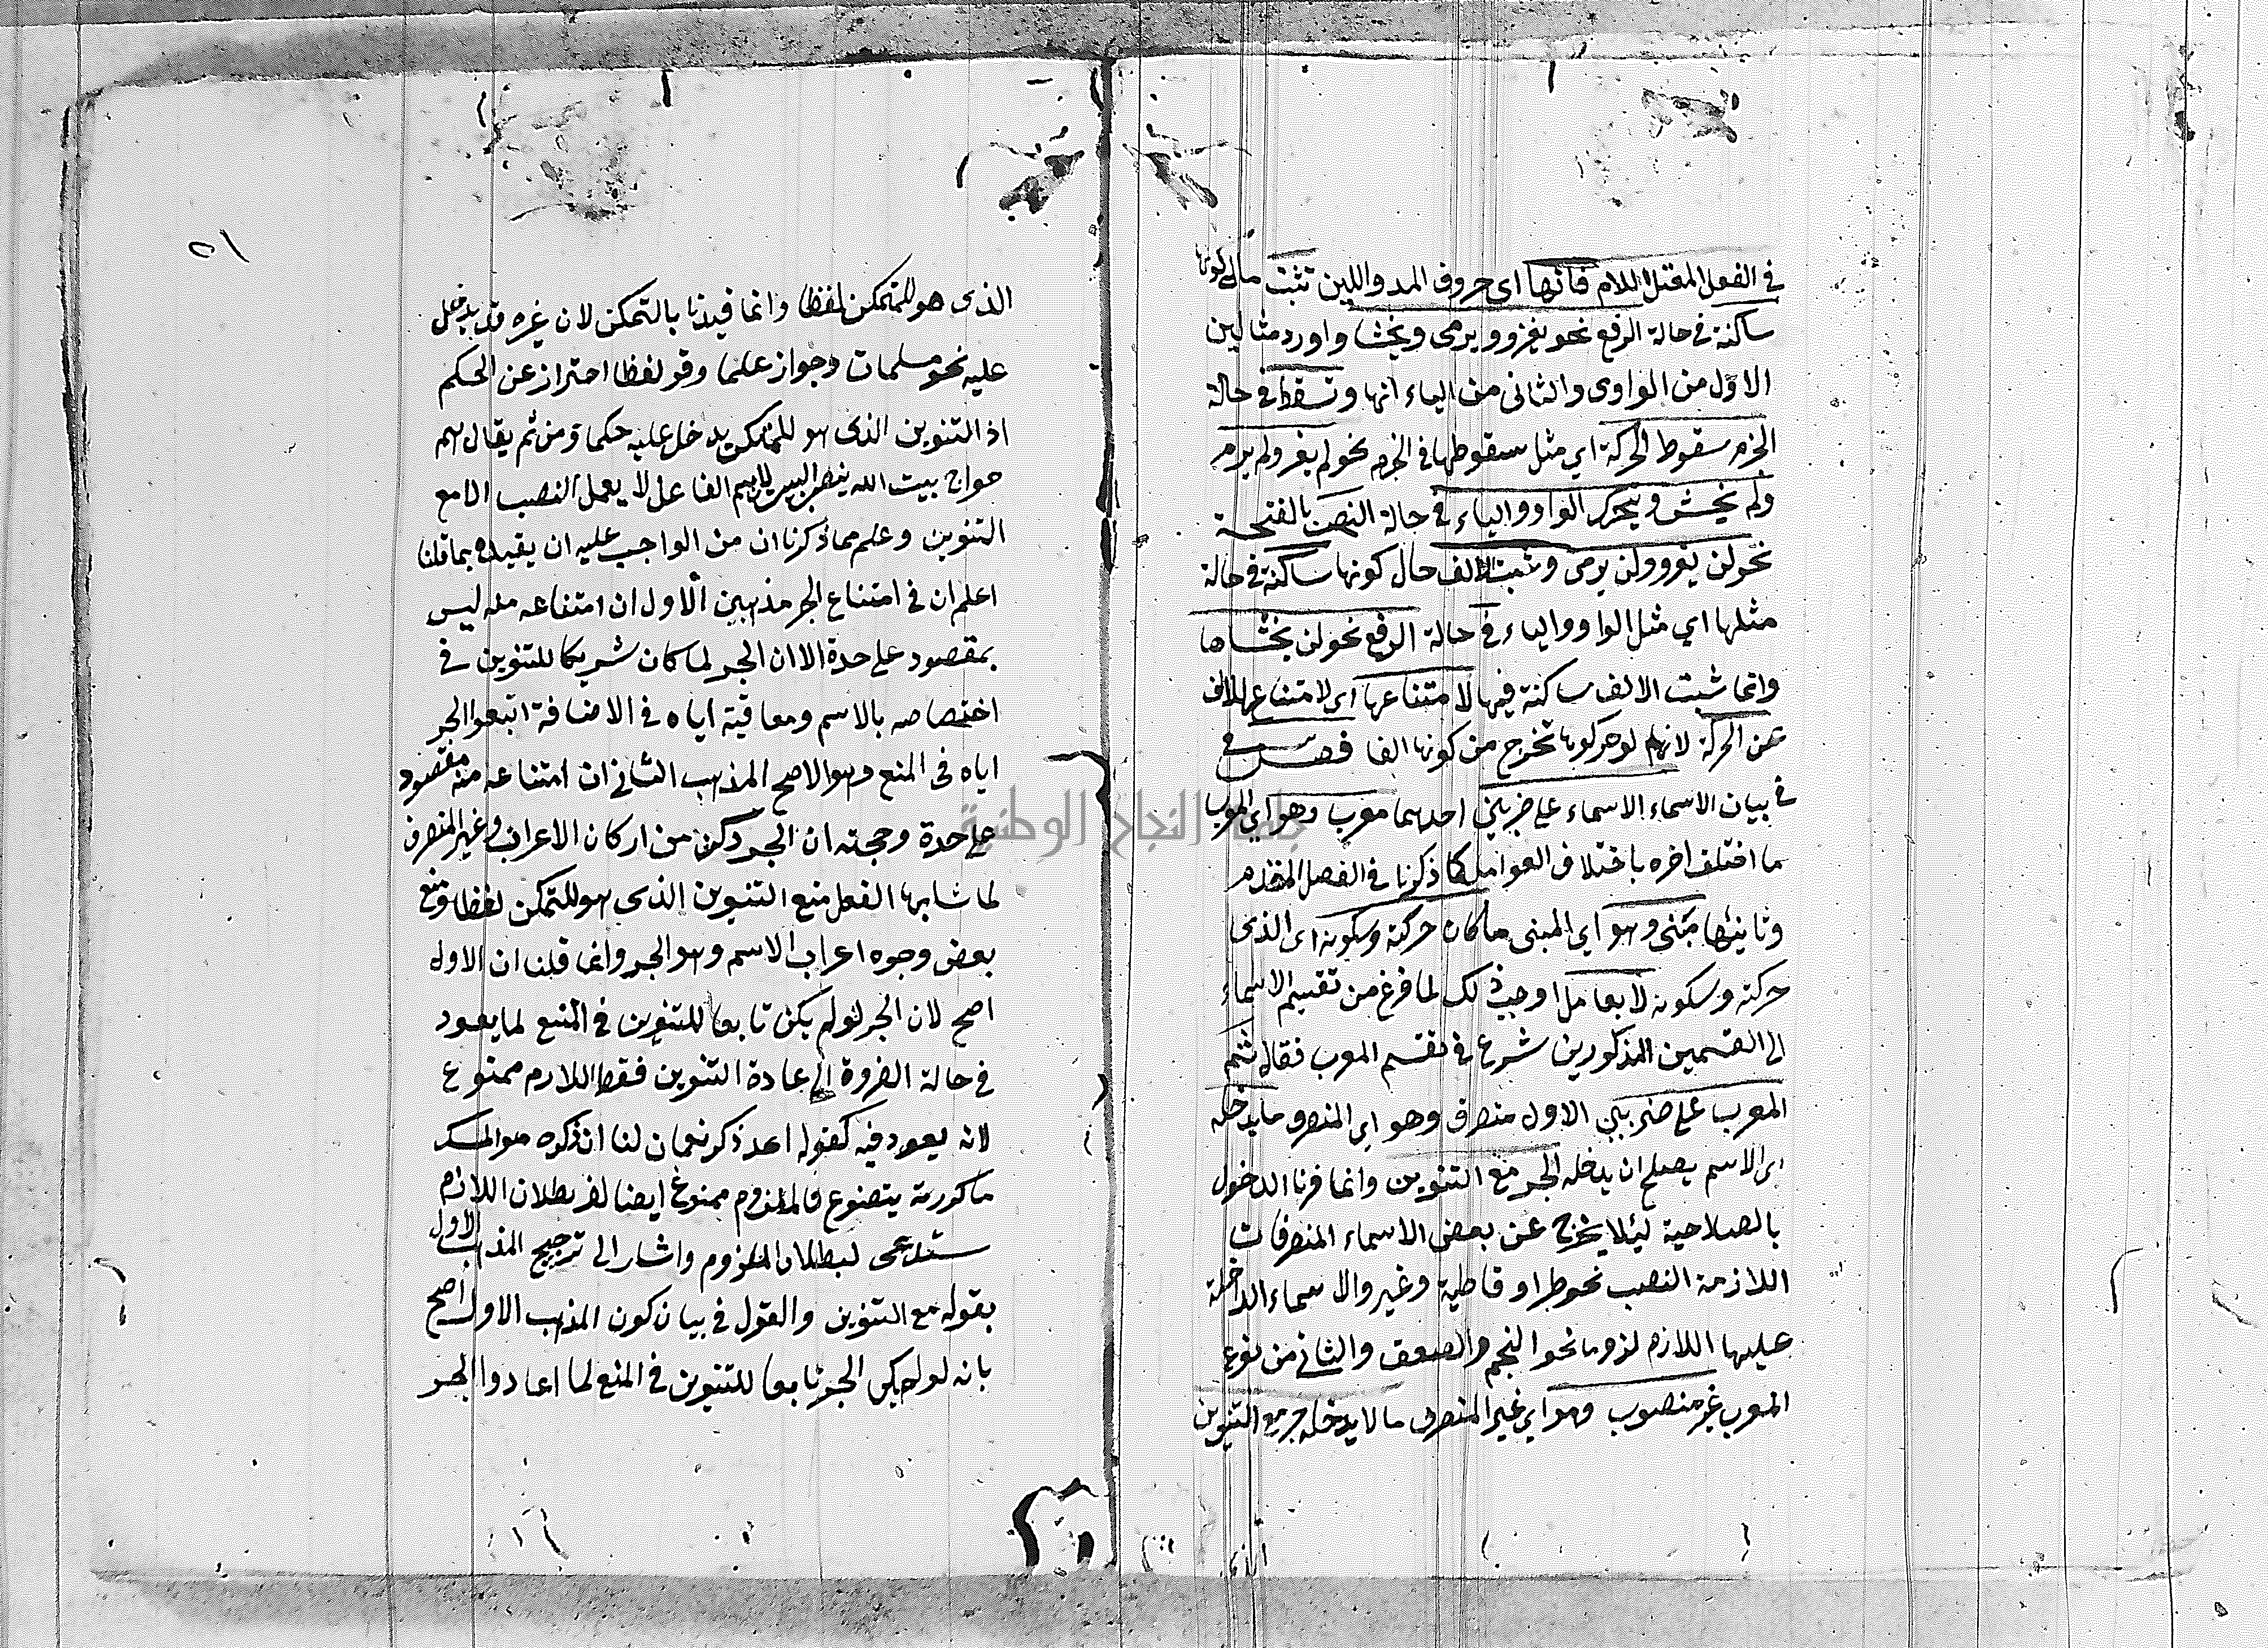 في الفعل المعتل اللام فانها اي حروف المد واللين تثبت حال كونها
ساكنة في حالة الرفع نحو يغزو ويرمى ويخشا واورد مثالين
الاول من الواوى والثانى من الياء انها وتسقط في حالة
الجزم سقوط الحركة اي مثل سقوطها في الجزم نحو لم يغز ولم يرم
ولم يخش ويتحرك الواو والياء في حالة النصب بالفتحة
نحو لن يغزو ولن يرمى وتثبت الالف حال كونها ساكنة في حالة
مثلها اي مثل الواو والياء في حالة الرفع نحو لن يخشاها
وانما تثبت الالف ساكنة فيها لامتناعها اي لامتناع الالف
عن الحركة لانهم لو حركوها تخرج من كونها الفا فصل في
في بيان الاسماء الاسماء على ضربين احدهما معرب وهو اي المعرب
ما اختلف اخره باختلاف العوامل كما ذكرنا في الفصل المتقدم
وثانيها مبنى وهو اي المبنى ما كان حركته وسكونه اى الذى
حركته وسكونه لا بعامل اوجب ذلك لما فرغ من تقسيم الاسماء
الى القسمين المذكورين شرع في تقسيم المعرب فقال ثم
المعرب على ضربين الاول منصرف وهو اي المنصرف ما يدخله
اي الاسم يصلح ان يدخله الجر مع التنوين وانما فسرنا الدخول
بالصلاحية ليئلا يخرج عن بعض الاسماء المنصرفات
اللازمة النصب نحو طرا وقاطبة وغير والاسماء الداخلة
عليها اللازم لزوما نحو النجم والصعق والثانى من نوع
المعرب غير منصوب وهو اي غير المنصرف ما لا يدخله جر مع التنوين
الذى
٥١
الذى هو للتمكن لفظا وانما قيدنا بالتمكن لان غيره قد يدخل
عليه نحو مسلمات وجواز علما وقولفظا احتراز عن الحكم
اذ التنوين الذى هو للتمكن يدخل عليه حكما ومن ثم يقال هم
حواج بيت الله بنصب البيت اسم الفاعل لا يعمل النصب الا مع
التنوين وعلم مما ذكرنا ان من الواجب عليه ان يقيده بما قلنا
اعلم ان في امتناع الجر مذهبين الاول ان امتناعه منه ليس
بمقصود على حدة الا ان الجر لما كان شريكا للتنوين في
اختصاصه بالاسم ومعاقبة اياه في الاضافة اتبعوا الجر
اياه في المنع وهو الاصح المذهب الثاني ان امتناعه منه مقصود
على حدة وحجته ان الجر ركن من اركان الاعراب وغير المنصرف
لما شابها الفعل منع التنوين الذى هو للتمكن لفظا ومنع
بعض وجوه اعراب الاسم وهو الجر وانما قلنا ان الاول
اصح لان الجر لو لم يكن تابعا للتنوين في المنع لما يعود
في حالة الضروة الى عادة التنوين فقط اللازم ممنوع
لانه يعود فيه كقوله اعد ذكر نعمان لنا ان ذكره هو المسك
ما كررته يتضوع فالملزوم ممنوع ايضا لان بطلان اللازم
يستدعى لبطلان الملزوم واشار الى ترجيح المذهب الاول
بقوله مع التنوين والقول في بيان كون المذهب الاول اصح
بانه لو لم يكن الجر تابعا للتنوين في المنع لما اعادوا الجر
جامعة النجاح الوطنية